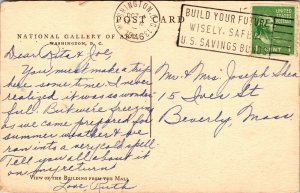 POST CARD
NATIONAL GALLERY OF ART
WASHINGTON, D. C.
WASHINGTON
BUILD YOUR FUTURE
WISELY-SAFELY
U.S. SAVINGS BONDS
1 CENT
Dear Rita & Joe,
You must make a trip
here some time. I never
realized it was so wonder-
ful. But were freezing
as we came prepared for
summer weather & we
ran into a very cold spell.
Tell you all about it
on our return
Love Ruth
VIEW OF THE BUILDING FROM THE MALL
Mr & Mrs Joseph Shea
15 Ives St
Beverly, Mass